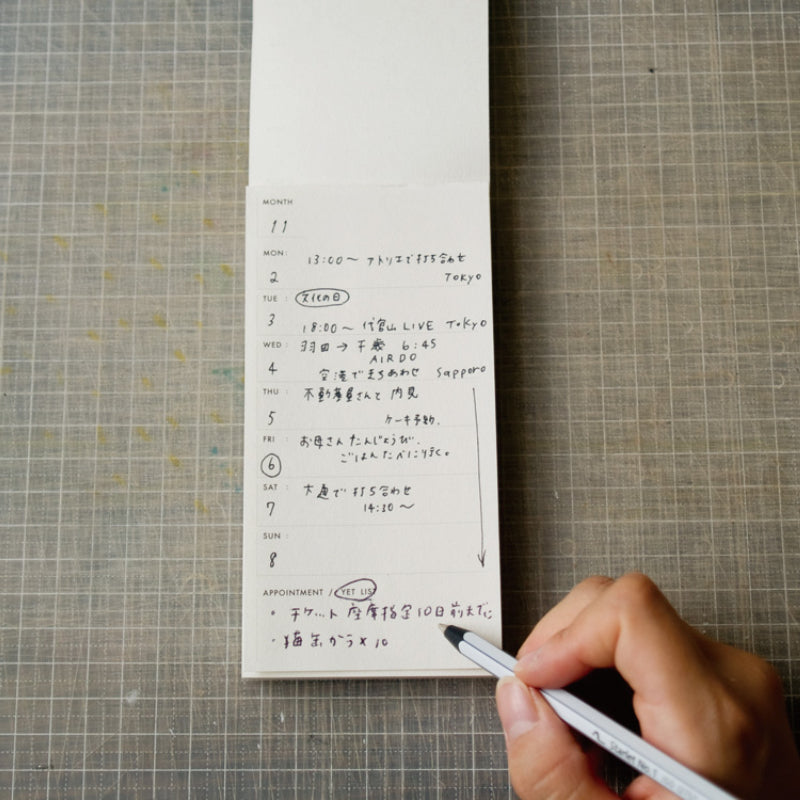 MONTH
11
MON:
13:00〜 アトリエで打ち合わせ
2
Tokyo
TUE : 文化の日
3
18:00〜 代官山 LIVE Tokyo
WED : 羽田 → 千歳 6:45
AIRDO
4
空港でまちあわせ Sapporo
THU : 不動産屋さんと 内見
5
ケーキ予約.
FRI : お母さん たんじょうび.
6
ごはんたべに行く。
SAT : 大通で 打ち合わせ
7
14:30 〜
SUN :
8
APPOINTMENT / YET LIST
・ チケット 座席指定 10日前までに
・ 猫缶 かう × 10
Starlet No.1